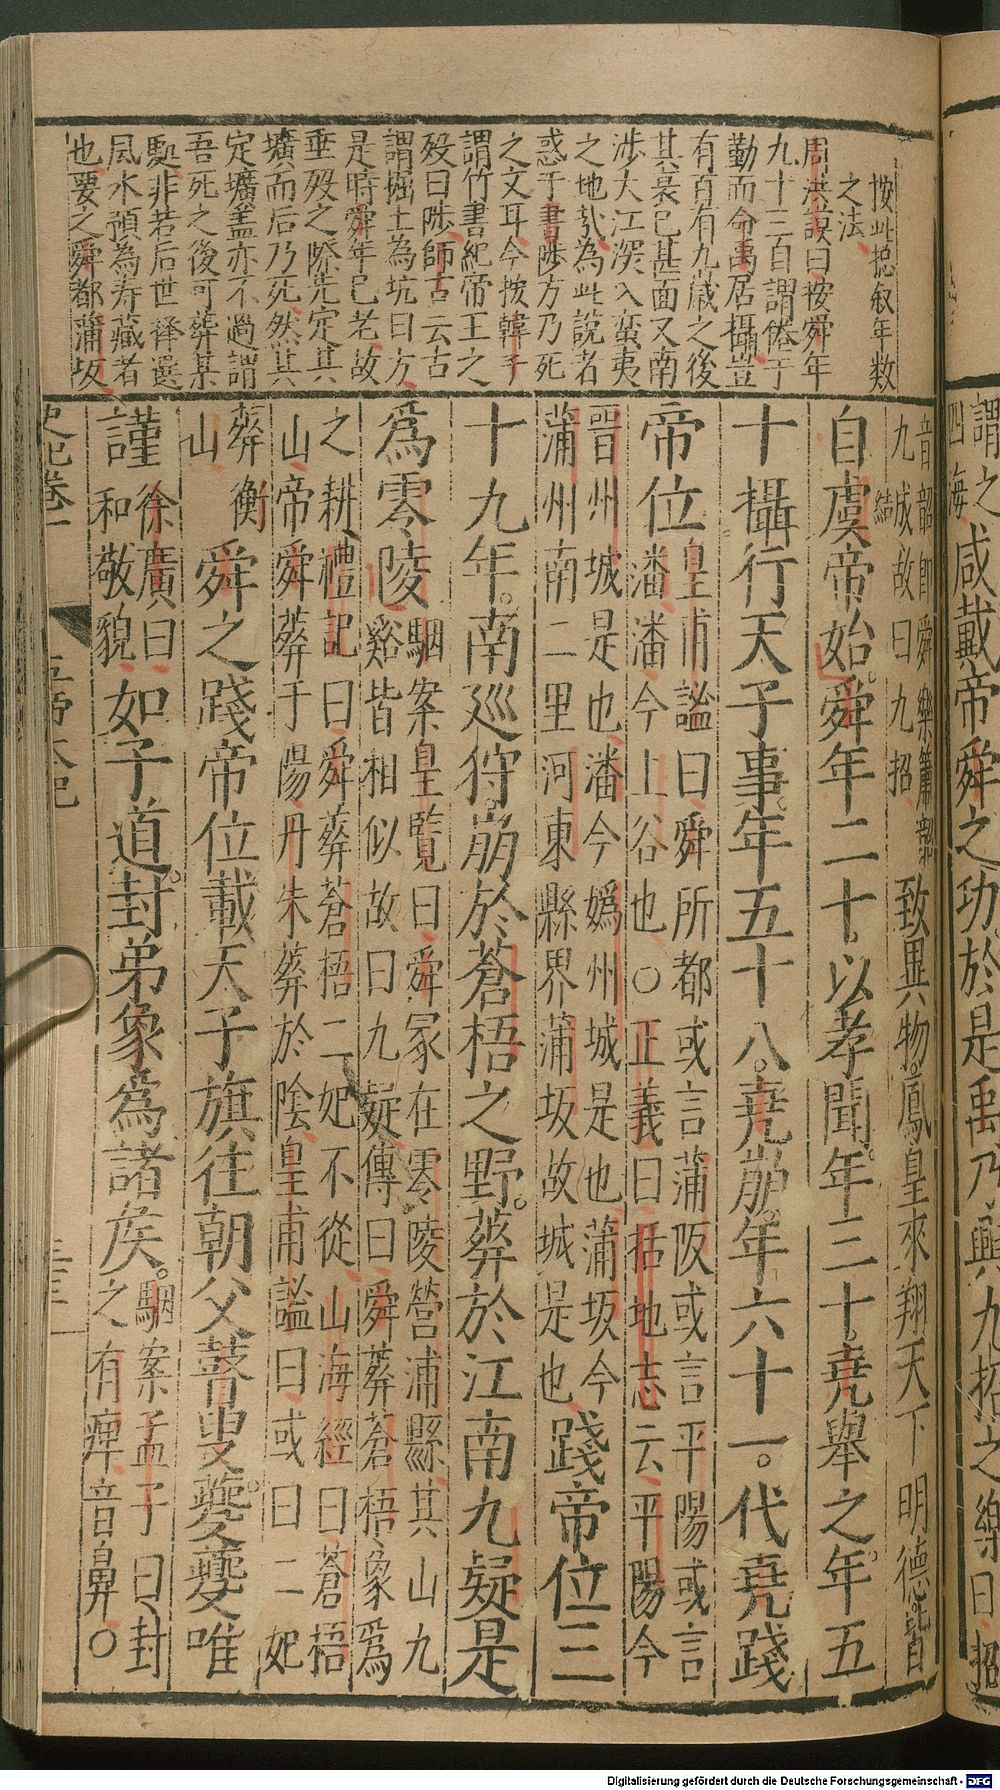 謂之
四海
咸戴帝舜之功於是禹乃興九招之樂曰招
按此摠叙年數
之法
周洪謨曰按舜年
九十三自謂倦于
勤而命禹居攝豈
有百有九歲之後
其衰已甚而又南
涉大江深入蠻夷
之地哉為此說者
惑于書陟方乃死
之文耳今按韓子
謂竹書紀帝王之
歿曰陟師古云古
謂掘土為坑曰方
是時舜年已老故
垂歿之際先定其
壙而后乃死然其
定壙盖亦不過謂
吾死之後可葬某
處非若后世擇選
風水預為壽藏者
也要之舜都蒲坂
音韶即舜樂簫韶
九成故曰九招
致異物鳳皇來翔天下明德皆
自虞帝始舜年二十以孝聞年三十堯舉之年五
十攝行天子事年五十八堯崩年六十一代堯踐
帝位
皇甫謐曰舜所都或言蒲阪或言平陽或言
潘潘今上谷也○正義曰括地志云平陽今
晋州城是也潘今媯州城是也蒲坂今
蒲州南二里河東縣界蒲坂故城是也
踐帝位三
十九年南廵狩崩於蒼梧之野葬於江南九疑是
為零陵
駰案皇覽曰舜冢在零陵營浦縣其山九
谿皆相似故曰九疑傳曰舜葬蒼梧象為
之耕禮記曰舜葬蒼梧二妃不從山海經曰蒼梧
山帝舜葬于陽丹朱葬於陰皇甫謐曰或曰二妃
葬衡
山
舜之踐帝位載天子旗往朝父瞽叟夔夔唯
謹
徐廣曰
和敬貌
如子道封弟象為諸侯
駰案孟子曰封
之有痺音鼻○
史記卷一
五帝本紀
Digitalisierung gefördert durch die Deutsche Forschungsgemeinschaft - DFG